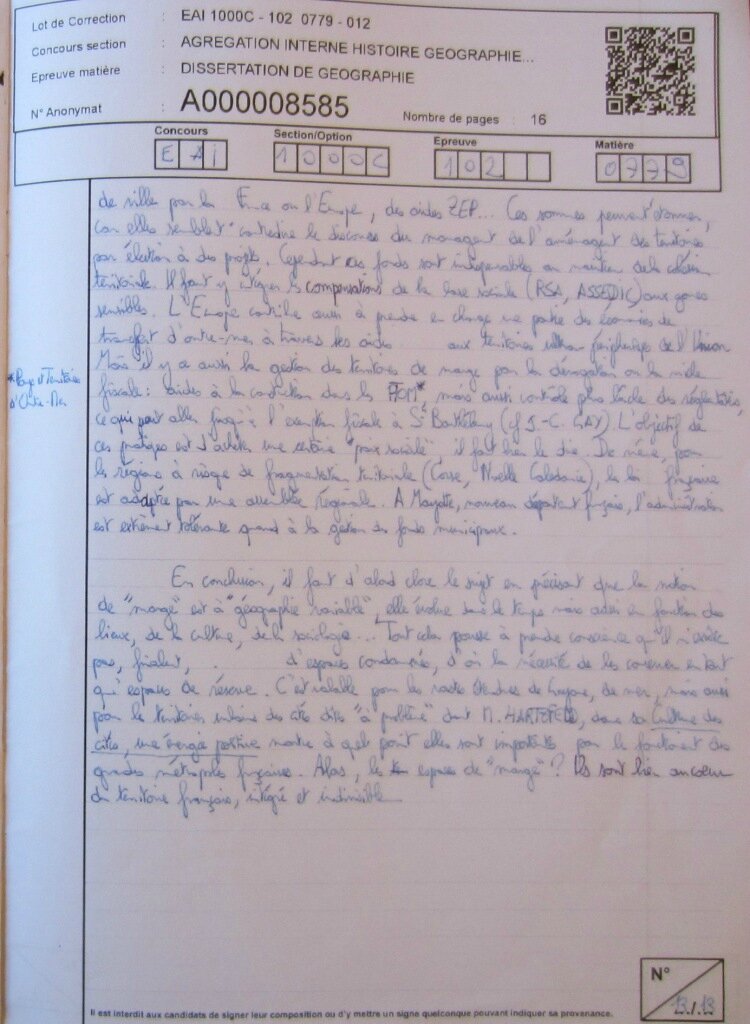 Lot de Correction : EAI 1000C - 102 0779 - 012
Concours section : AGREGATION INTERNE HISTOIRE GEOGRAPHIE...
Epreuve matière : DISSERTATION DE GEOGRAPHIE
N° Anonymat : A000008585 Nombre de pages : 16
Concours Section/Option Epreuve Matière
E A I 1 0 0 0 C 1 0 2 0 7 7 9
de ville par la France ou l'Europe, des aides ZEP... Ces sommes peuvent étonner,
car elles semblent contredire le discours du managent de l'aménagent des territoires
par élection à des projets. Cependant ces fonds sont indispensables au maintien de la cohésion
territoriale. Il faut y intégrer les compensations de la base sociale (RSA, ASSEDIC) aux zones
sensibles. L'Europe contribue aussi à prendre en charge une partie des économies de
transfert d'outre-mer à travers les aides aux territoires ultra périphériques de l'Union
Mais il y a aussi la gestion des territoires de marge par la dérogation ou la niche
fiscale : aides à la construction dans les PTOM*, mais aussi contrôle plus lâche des règlementés,
*Pays et Territoires
d'Outre-Mer
ce qui peut aller jusqu'à l'exemption fiscale à St Barthélemy (cf J.-C. GAY). L'objectif de
ces pratiques est d'acheter une certaine "paix sociale", il faut bien le dire. De même, pour
les régions à risque de fragmentation territoriale (Corse, Nouvelle Calédonie), la loi française
est adaptée par une assemblée régionale. A Mayotte, nouveau départent français, l'administration
est extrêment tolérante quand à la gestion des fonds municipaux.
En conclusion, il faut d'abord clore le sujet en précisant que la notion
de "marge" est à "géographie variable", elle évolue dans le temps mais aussi en fonction des
lieux, de la culture, de la sociologie... Tout cela pousse à prendre conscience qu'il n'existe
pas, finalent, d'espaces condamnés, d'où la nécessité de les conserver en tant
qu'espaces de réserve. C'est valable pour les vastes étendues de Guyane, de mer, mais aussi
pour les territoires urbains des cités dites "à problème" dont M. HATZFELD, dans sa Culture des
cités, une énergie positive montre à quel point elles sont importantes pour le fonctionent des
grandes métropoles françaises. Alors, les espaces de "marge" ? Ils sont bien au coeur
du territoire français, intégré et indivisible
N° 13/13
Il est interdit aux candidats de signer leur composition ou d'y mettre un signe quelconque pouvant indiquer sa provenance.